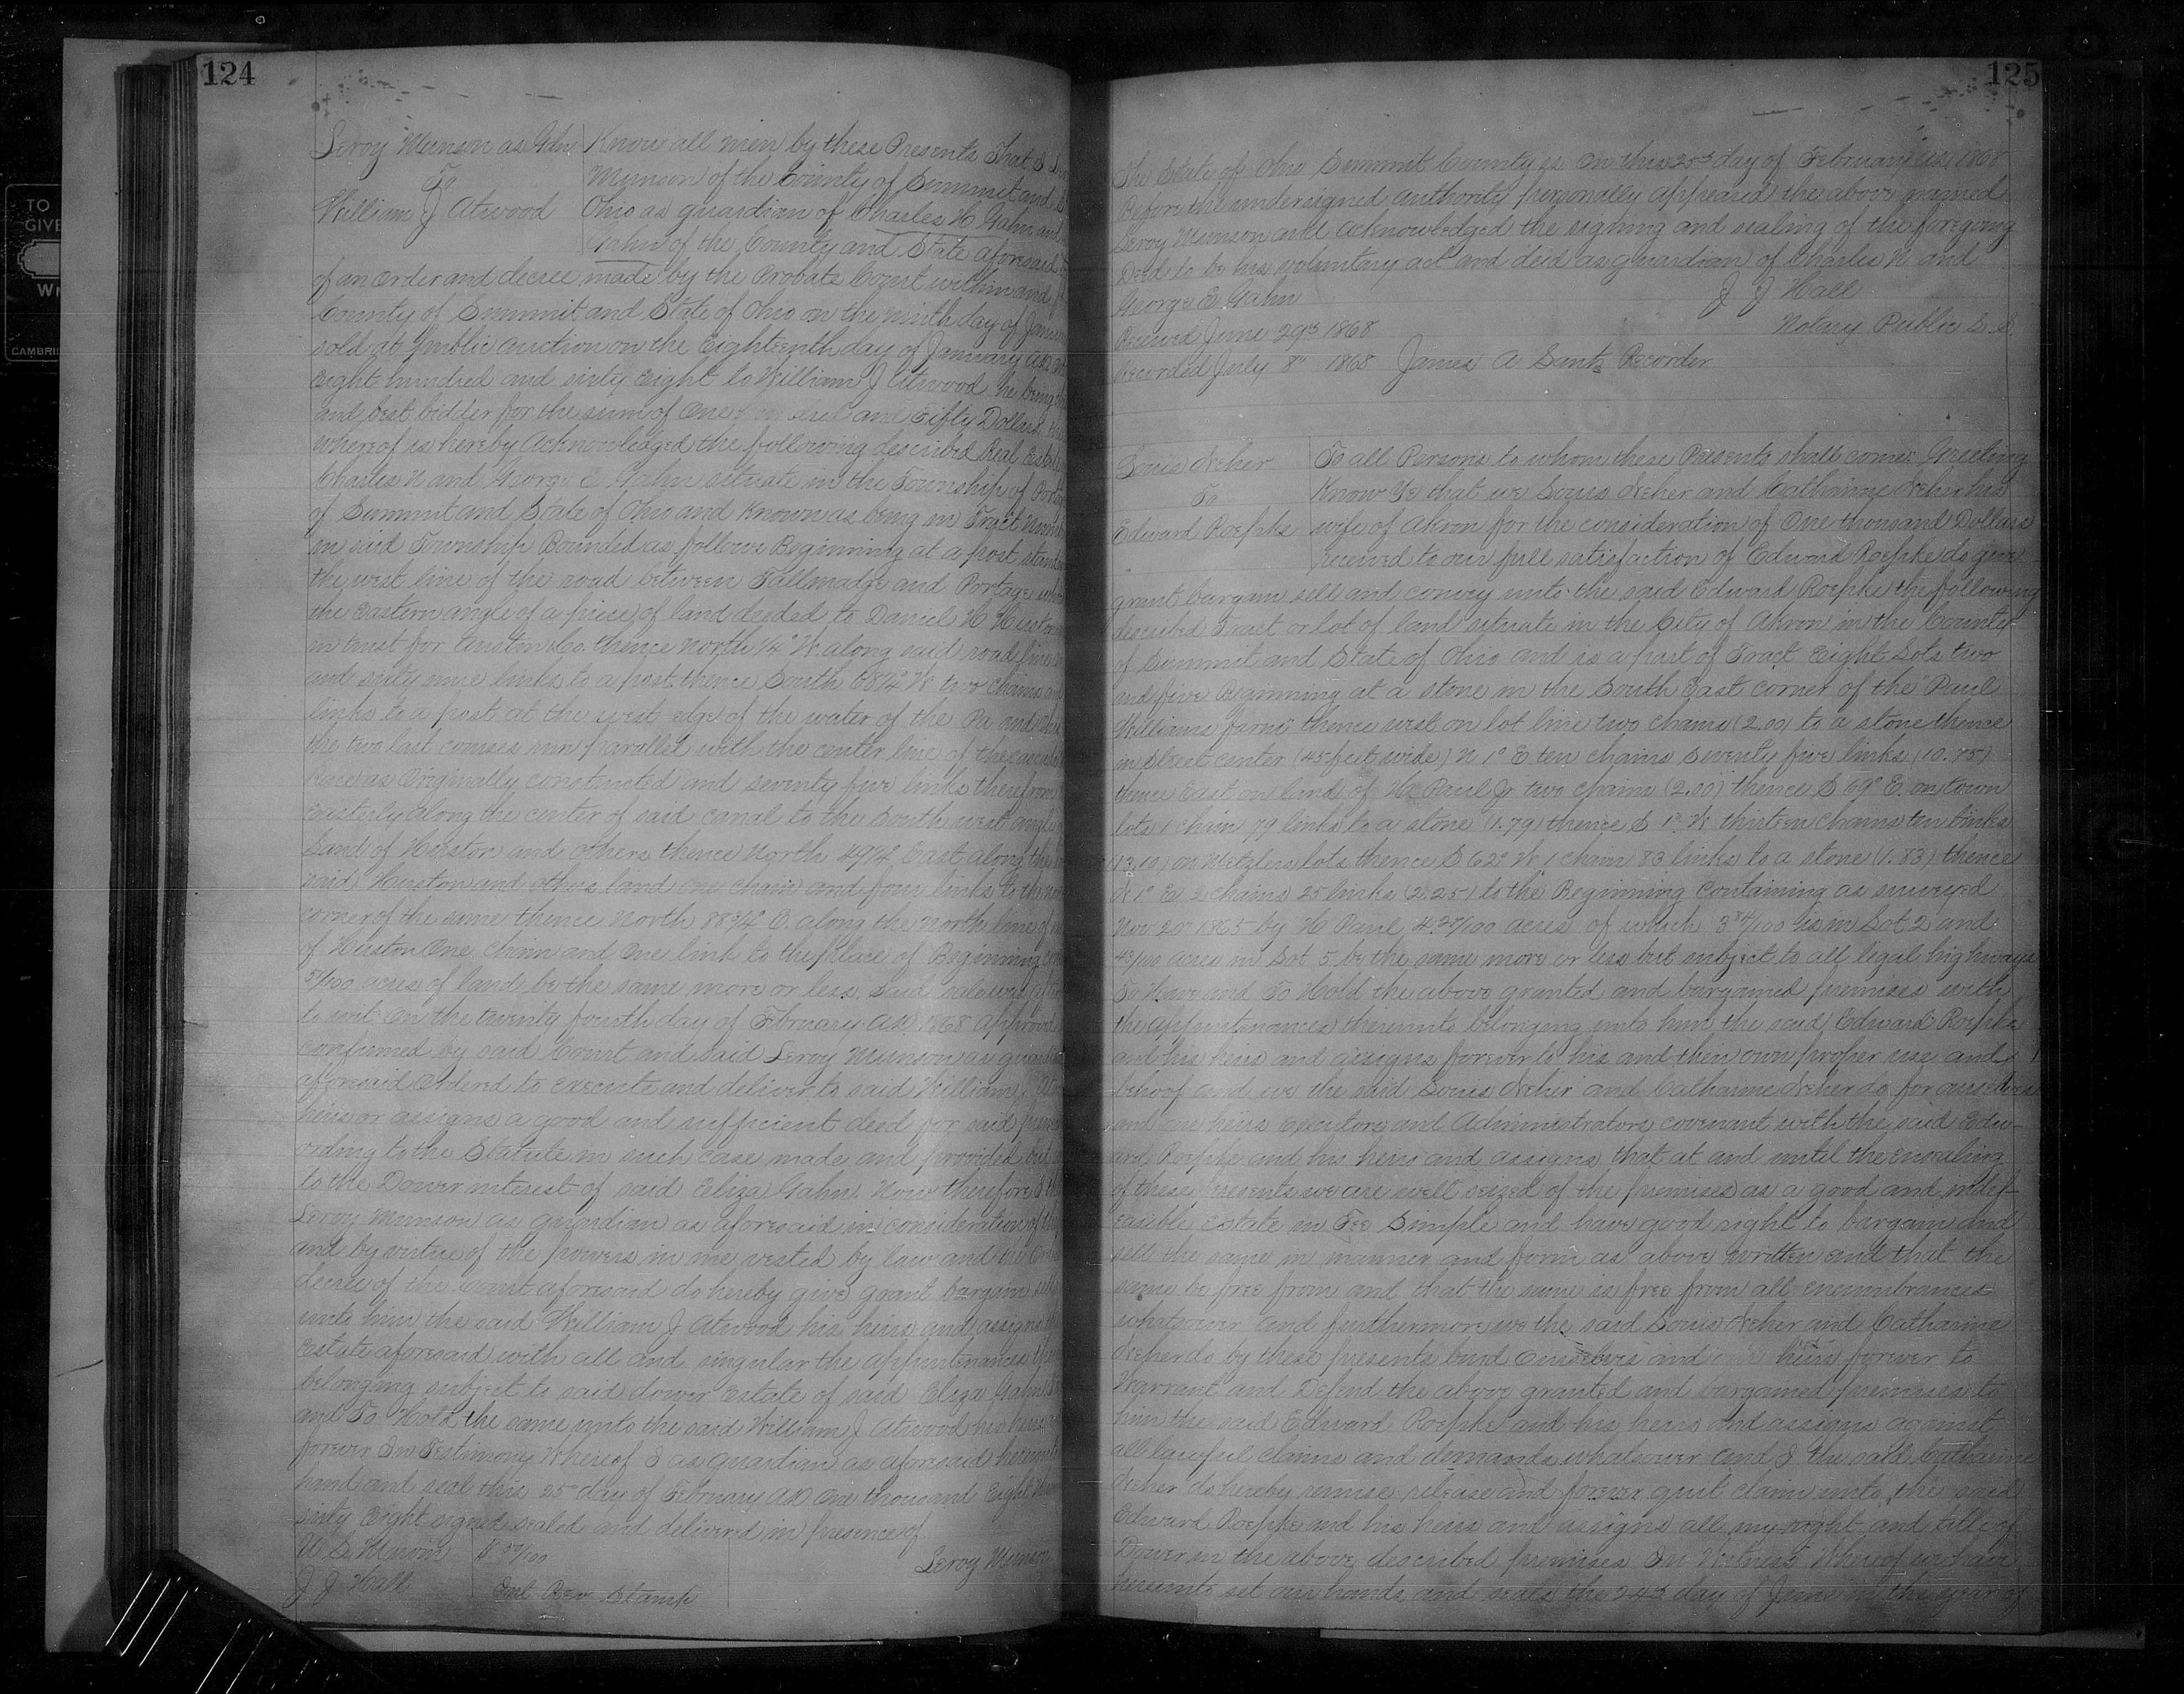 124
Leroy Munson as Gdn Know all men by these Presents That I
To Munson of the County of Summit and
William J Atwood Ohio as guardian of Charles N Gahn and
Gahn of the County and State aforesaid
of an Order and decree made by the Probate Court within and
County of Summit and State of Ohio on the ninth day of
sold at public auction on the Eighteenth day of January AD
Eight hundred and sixty Eight to William J Atwood he being
and best bidder for the sum of One and Fifty Dollars
whereof is hereby Acknowledged the following described Real
Charles N and George E Gahn situate in the Township of
of Summit and State of Ohio and Known as being in Tract
in said Township Bounded as follows Beginning at a post
the west line of the road between Tallmadge and Portage
the Eastern angle of a piece of land deeded to Daniel H
in trust for Austin & Co. thence North 1/4° W. along said road line
and sixty nine links to a post thence South 68 1/2° W two chains
links to a post at the west edge of the water of the Pa and
the two last courses run parallel with the center line of the
Race as Originally constructed and seventy five links therefrom
Easterly along the center of said canal to the South west angle
Land of Huston and others thence North East along the
said Huston and others land one chain and four links to the
corner of the same thence North 88 3/4° E. along the North line of
of Huston One chain and One link to the place of Beginning
/100 acres of land be the same more or less Said sale was
to wit On the twenty fourth day of February AD 1868
confirmed by said Court and said Leroy Munson as
aforesaid Ordered to Execute and deliver to said William
heirs or assigns a good and sufficient deed for said
ording to the Statute in such case made and provided
to the Dower interest of said Eliza Gahn. Now therefore I
Leroy Munson as guardian as aforesaid in consideration of
and by virtue of the powers in me vested by law and the
decree of the Court aforesaid do hereby give grant bargain
unto him the said William J Atwood his heirs and assigns
Estate aforesaid with all and singular the appurtenances
belonging subject to said dower Estate of said Eliza Gahn
and To Hold the same unto the said William J Atwood his heirs
forever In Testimony Whereof I as guardian as aforesaid
hand and seal this 25 day of February AD One thousand Eight
sixty Eight signed sealed and delivered in presence of
J J Hall Int Rev Stamp Leroy Munson
125
The State of Ohio Summit County ss On this 25th day of February AD, 1868
Before the undersigned authority personally appeared the above named
Leroy Munson and Acknowledged the signing and sealing of the foregoing
Deed to be his voluntary act and deed as guardian of Charles N and
George E Gahn J J Hall
Received June 29th 1868 Notary Public
Recorded July 8th 1868 James A Recorder
Louis Neher To all Persons to whom these Presents shall come: Greeting
To Know Ye that we Louis Neher and Catharine Neher his
Edward Roepke wife of Akron for the consideration of One thousand Dollars
received to our full satisfaction of Edward Roepke do give
grant bargain sell and convey unto the said Edward Roepke the following
described Tract or lot of land situate in the City of Akron in the County
of Summit and State of Ohio and is a part of Tract Eight Lots two
and five Beginning at a stone in the South East corner of the "Paul
Williams farm" thence west on lot line two chains (2.00) to a stone thence
in street center (45 feet wide) N 1° E ten chains Seventy five links (10.75)
thence East on land of H Paul Jr two chains (2.00) thence S 69° E. on town
lots 1 chain 79 links to a stone (1.79) thence S 1° W thirteen chains ten links
(13.10) on Metzlers lots thence S 62° W 1 chain 83 links to a stone (1.83) thence
N 1° E. 2 chains 25 links (2.25) to the Beginning Containing as surveyed
Nov 20th 1865 by H Paul 4 27/100 acres of which 3 84/100 is in Lot 2 and
43/100 acres in Lot 5 be the same more or less but subject to all legal highways
To Have and To Hold the above granted and bargained premises with
the appurtenances thereunto belonging unto him the said Edward Roepke
and his heirs and assigns forever to his and their own proper use and
behoof and we the said Louis Neher and Catharine Neher do for ourselves
and our heirs Executors and Administrators covenant with the said Edw-
ard Roepke and his heirs and assigns that at and until the Ensealing
of these Presents we are well seized of the premises as a good and indef-
easible Estate in Fee Simple and have good right to bargain and
sell the same in manner and form as above written and that the
same be free from and that the same is free from all encumbrances
whatsoever And furthermore we the said Louis Neher and Catharine
Neher do by these presents bind Ourselves and our heirs forever to
Warrant and Defend the above granted and bargained premises to
him the said Edward Roepke and his heirs and assigns against
all lawful claims and demands whatsoever And I the said Catharine
Neher do hereby remise release and forever quit claim unto the said
Edward Roepke and his heirs and assigns all my right and title of
Dower in the above described premises In Witness Whereof we have
hereunto set our hands and seals the 24th day of June in the year of